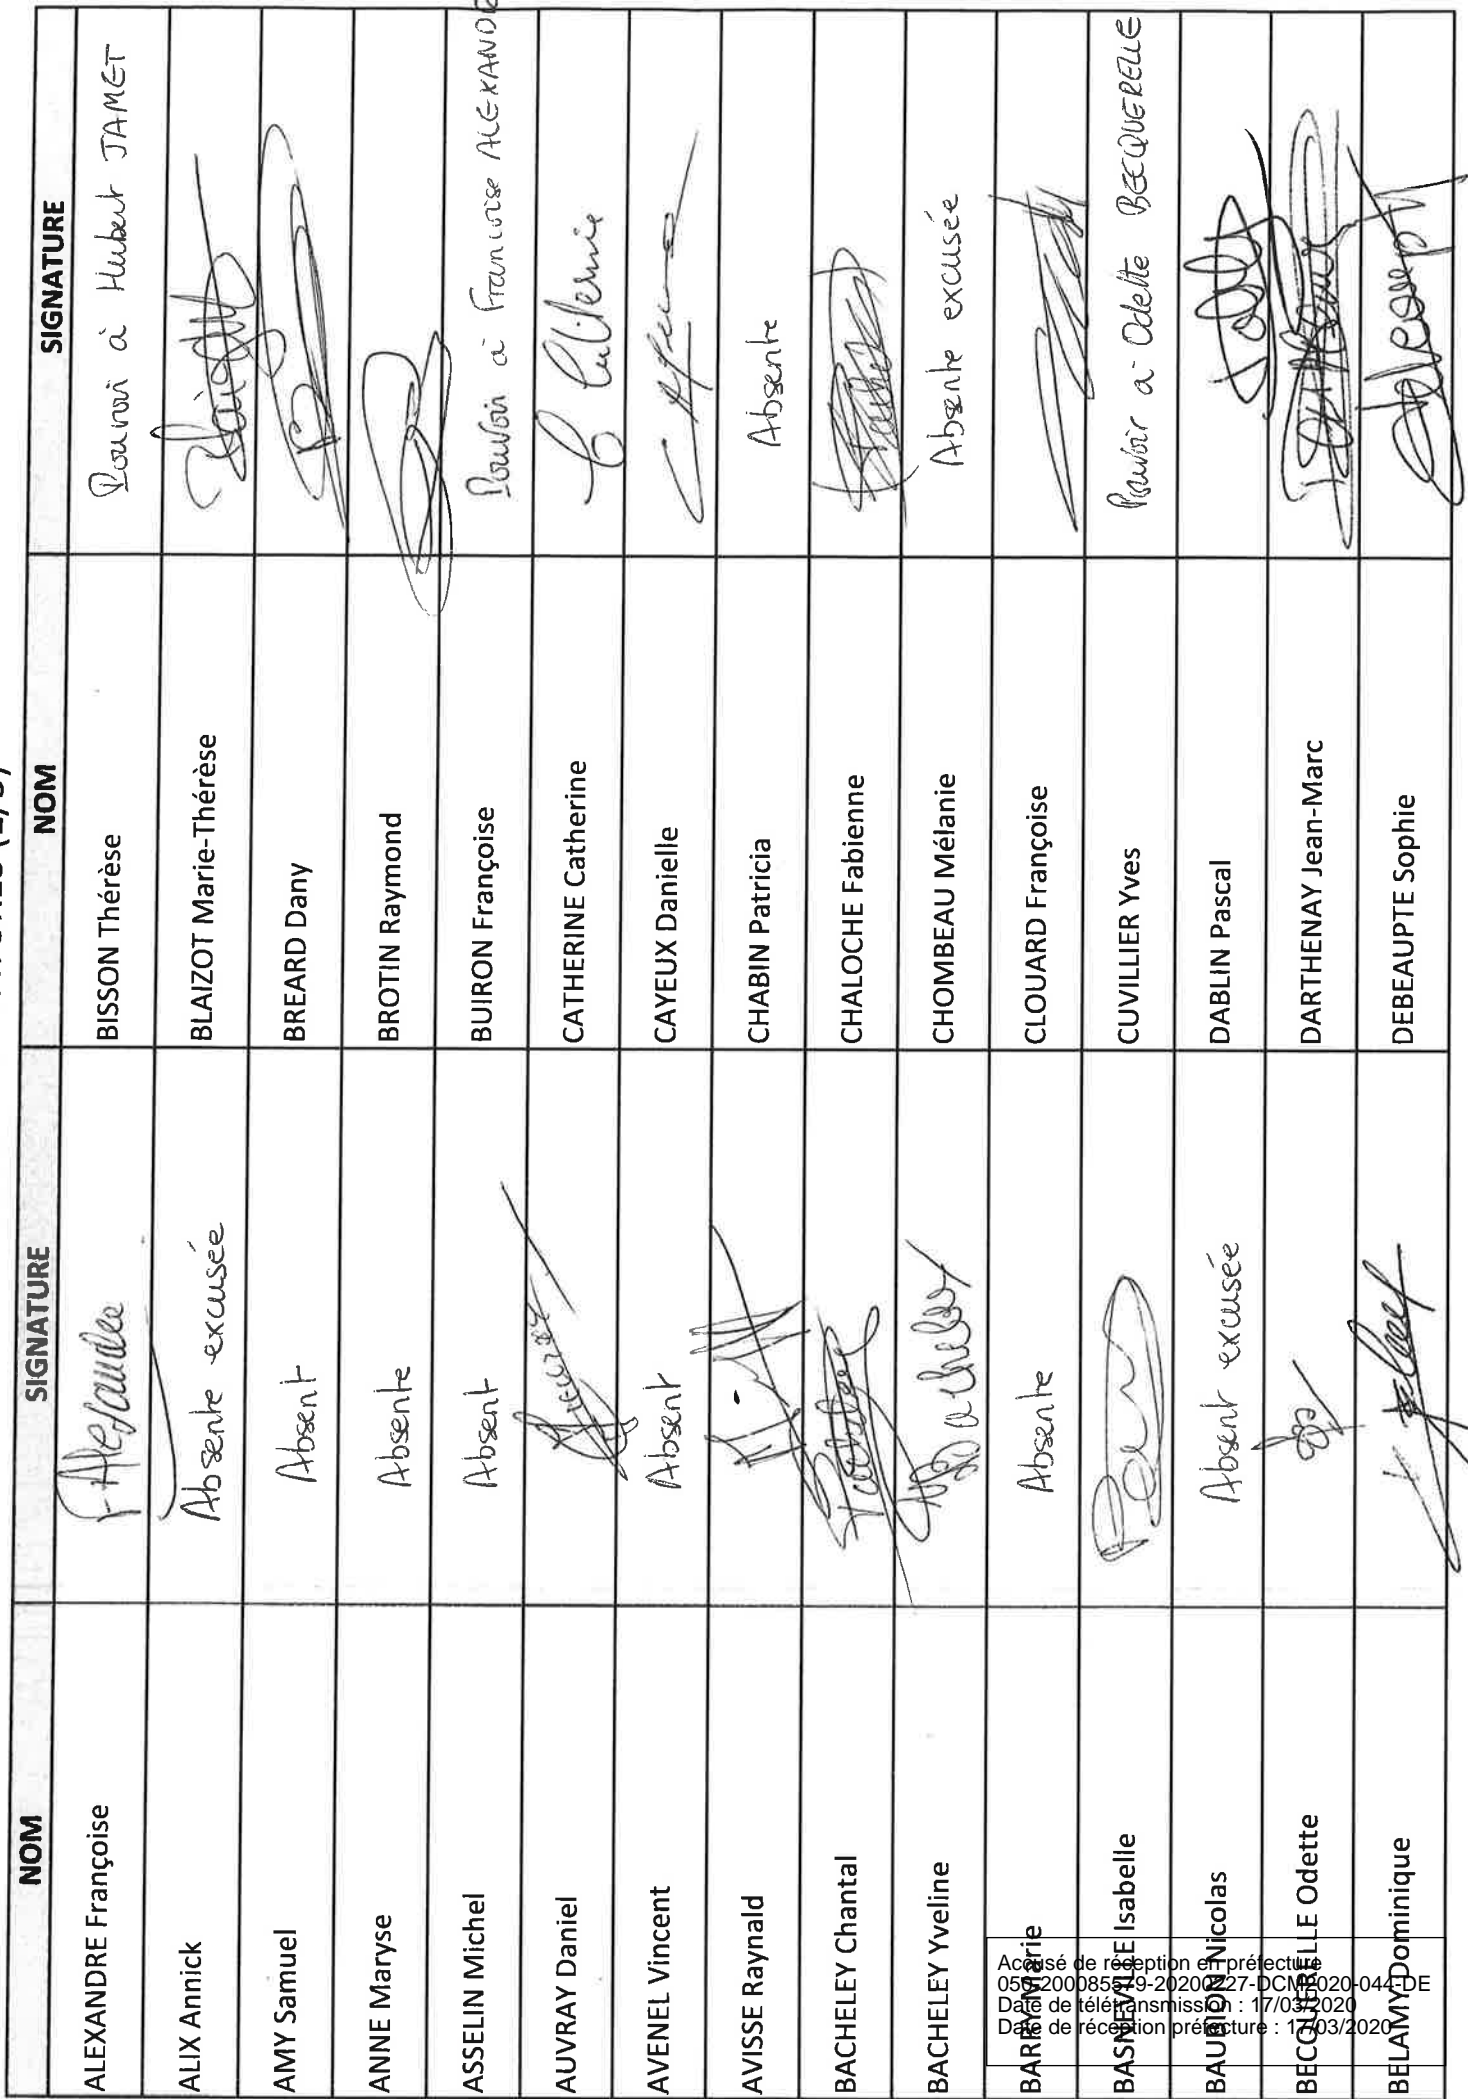 NOM SIGNATURE NOM SIGNATURE
ALEXANDRE Françoise F Alexandre BISSON Thérèse Pouvoir à Hubert JAMET
ALIX Annick Absente excusée BLAIZOT Marie-Thérèse
AMY Samuel Absent BREARD Dany
ANNE Maryse Absente BROTIN Raymond
ASSELIN Michel Absent BUIRON Françoise Pouvoir à Françoise ALEXANDRE
AUVRAY Daniel CATHERINE Catherine
AVENEL Vincent Absent CAYEUX Danielle
AVISSE Raynald CHABIN Patricia Absente
BACHELEY Chantal CHALOCHE Fabienne
BACHELEY Yveline Bacheley CHOMBEAU Mélanie Absente excusée
BARRY Marie Absente CLOUARD Françoise
BASNEVILLE Isabelle CUVILLIER Yves Pouvoir à Odette BECQUERELLE
BAUDION Nicolas Absent excusée DABLIN Pascal
BECQUERELLE Odette DARTHENAY Jean-Marc
BELAMY Dominique DEBEAUPTE Sophie
Accusé de réception en préfecture
050-200085579-20200227-DCM-2020-044-DE
Date de télétransmission : 17/03/2020
Date de réception préfecture : 17/03/2020